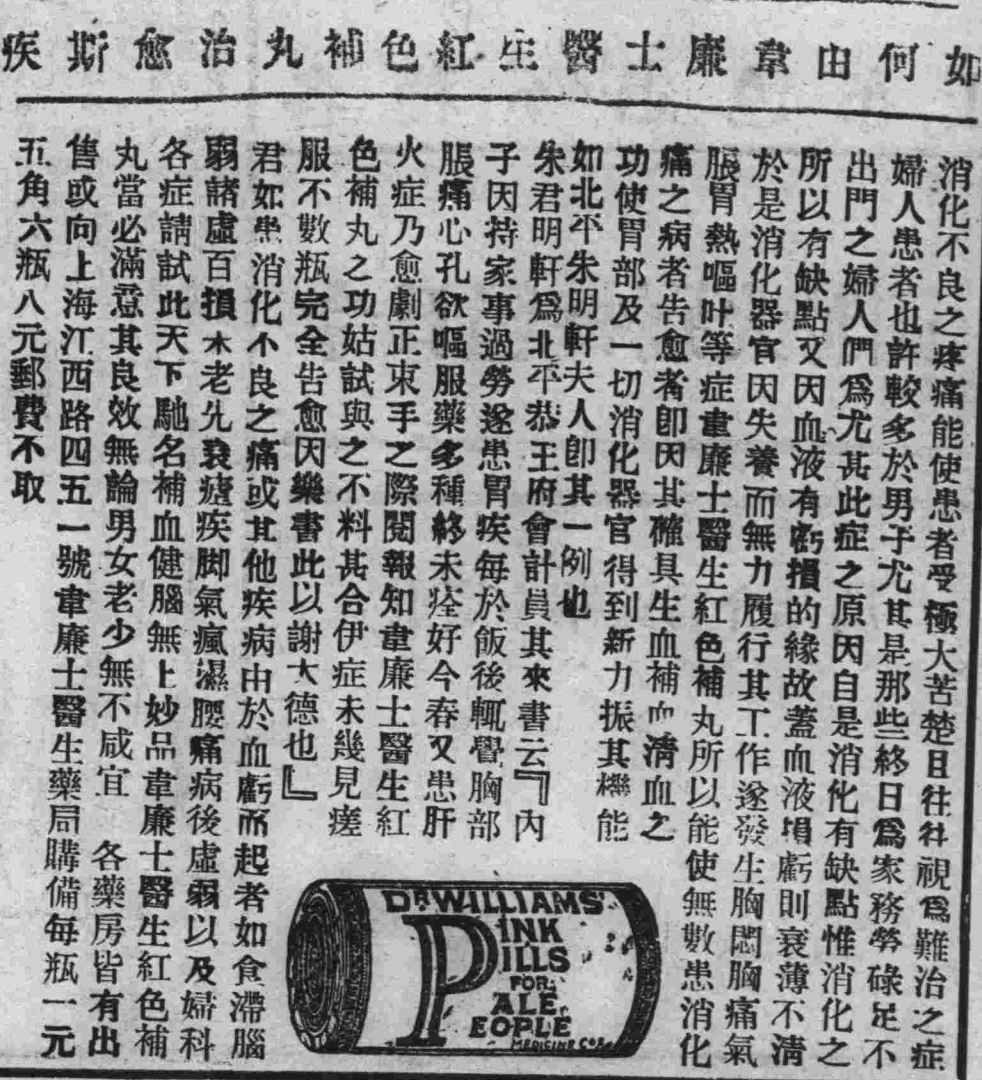 如何由韋廉士醫生紅色補丸治愈斯疾
消化不良之疼痛能使患者受極大苦楚且往往視爲難治之症
婦人患者也許較多於男子尤其是那些終日爲家務勞碌足不
出門之婦人們爲尤甚此症之原因自是消化有缺點惟消化之
所以有缺點又因血液有虧損的緣故蓋血液損虧則衰薄不清
於是消化器官因失養而無力履行其工作遂發生胸悶胸痛氣
脹胃熱嘔吐等症韋廉士醫生紅色補丸所以能使無數患消化
痛之病者告愈者卽因其確具生血補血清血之
功使胃部及一切消化器官得到新力振其機能
如北平朱明軒夫人卽其一例也
朱君明軒爲北平恭王府會計員其來書云『內
子因持家事過勞遂患胃疾每於飯後輒覺胸部
脹痛心孔欲嘔服藥多種終未痊好今春又患肝
火症乃愈劇正束手之際閱報知韋廉士醫生紅
色補丸之功姑試與之不料甚合伊症未幾見瘥
服不數瓶完全告愈因樂書此以謝大德也』
君如患消化不良之痛或其他疾病由於血虧而起者如食滯腦
弱諸虛百損未老先衰瘧疾脚氣瘋濕腰痛病後虛弱以及婦科
各症請試此天下馳名補血健腦無上妙品韋廉士醫生紅色補
丸當必滿意其良效無論男女老少無不咸宜 各藥房皆有出
售或向上海江西路四五一號韋廉士醫生藥局購備每瓶一元
五角六瓶八元郵費不取
DR WILLIAMS'
PINK
PILLS
FOR
PALE
PEOPLE
MEDICINE Co.